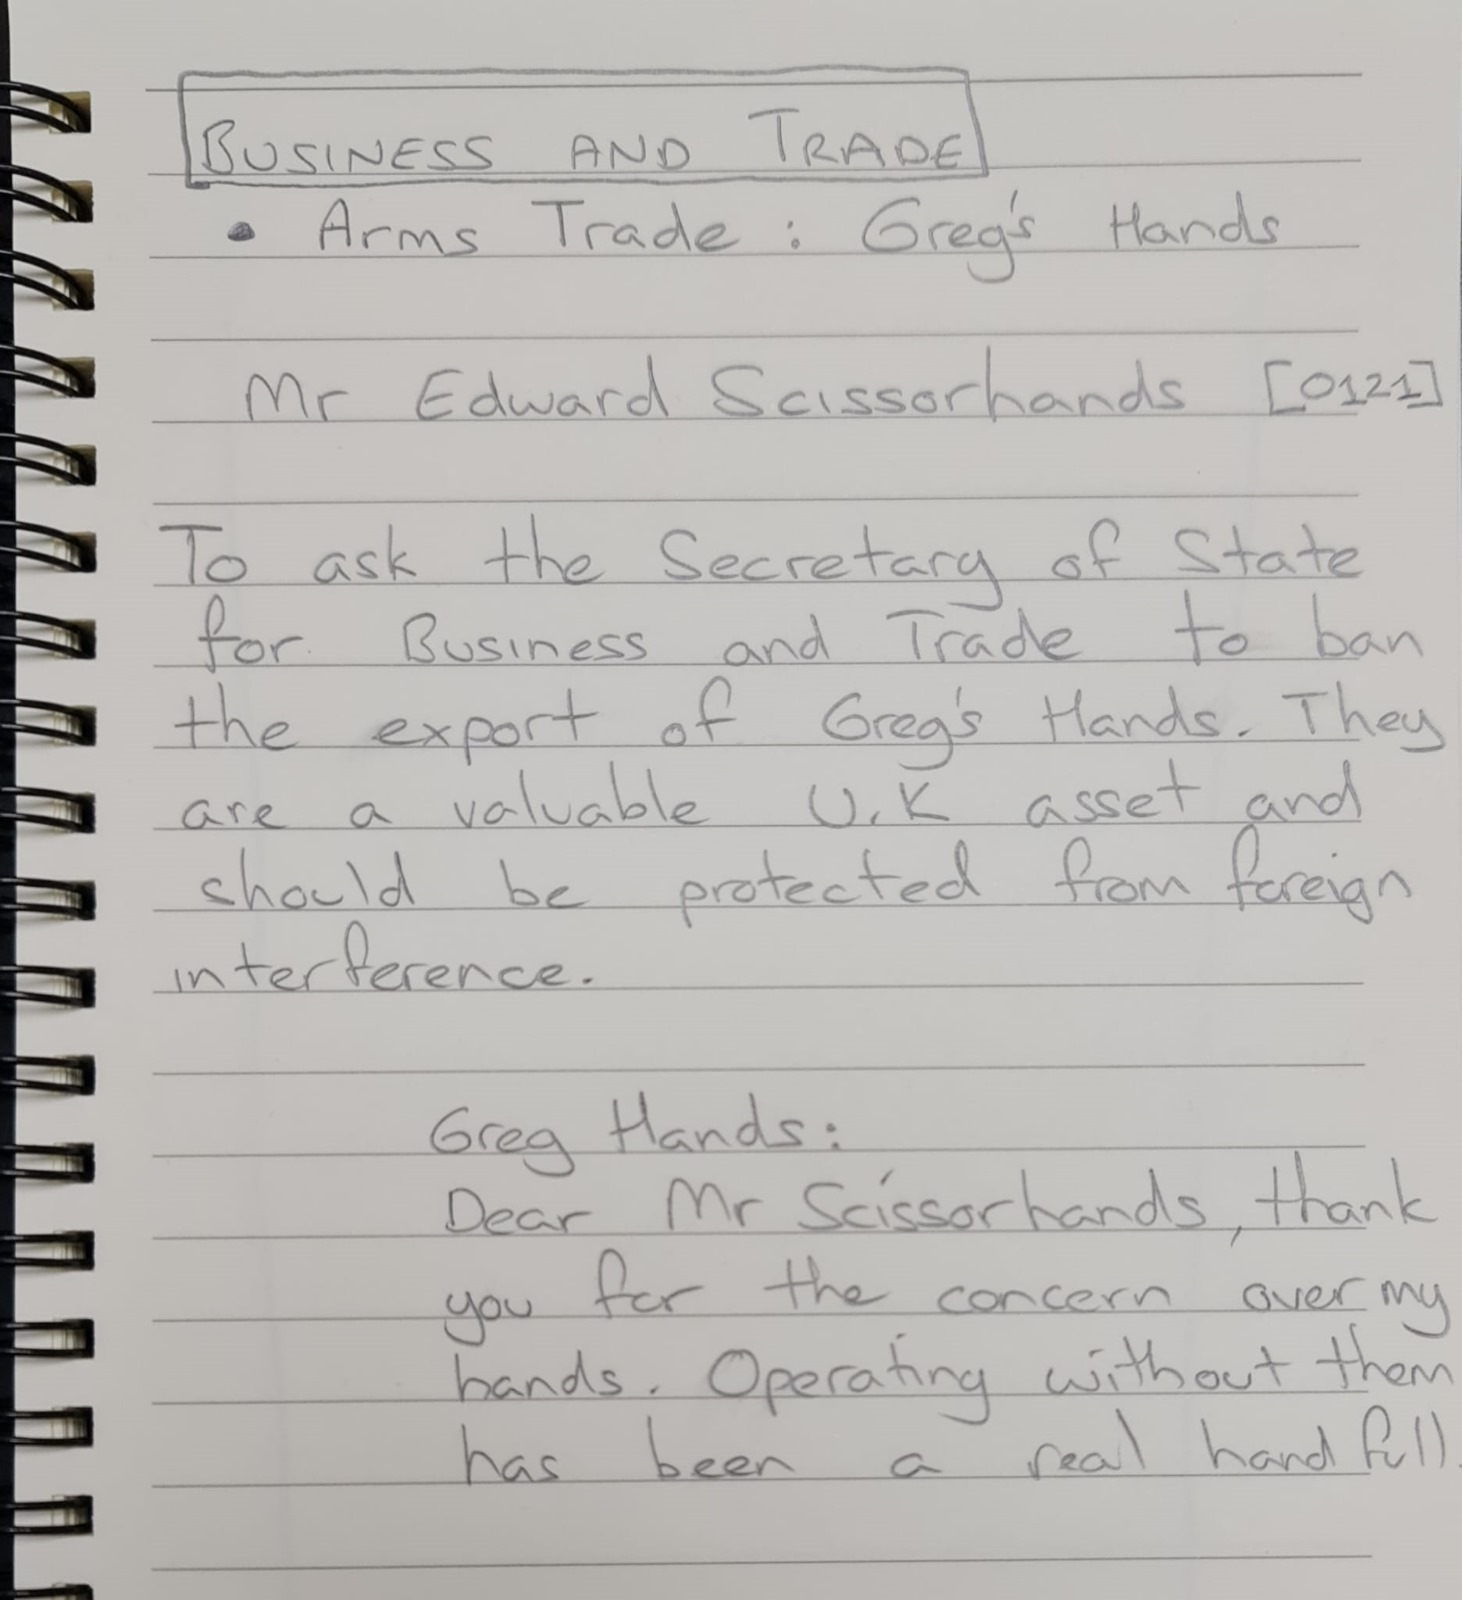 BUSINESS AND TRADE
• Arms Trade : Greg's Hands
Mr Edward Scissorhands [0121]
To ask the Secretary of State
for Business and Trade to ban
the export of Greg's Hands. They
are a valuable U.K asset and
should be protected from foreign
interference.
Greg Hands:
Dear Mr Scissorhands, thank
you for the concern over my
hands. Operating without them
has been a real handfull.